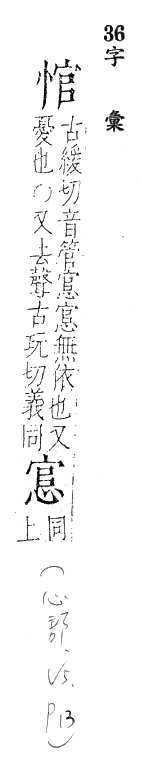 36字彙
悺
古緩切音管悹悹無依也又
憂也〇又去聲古玩切義同
悹
同
上
(心部、V5、P13)